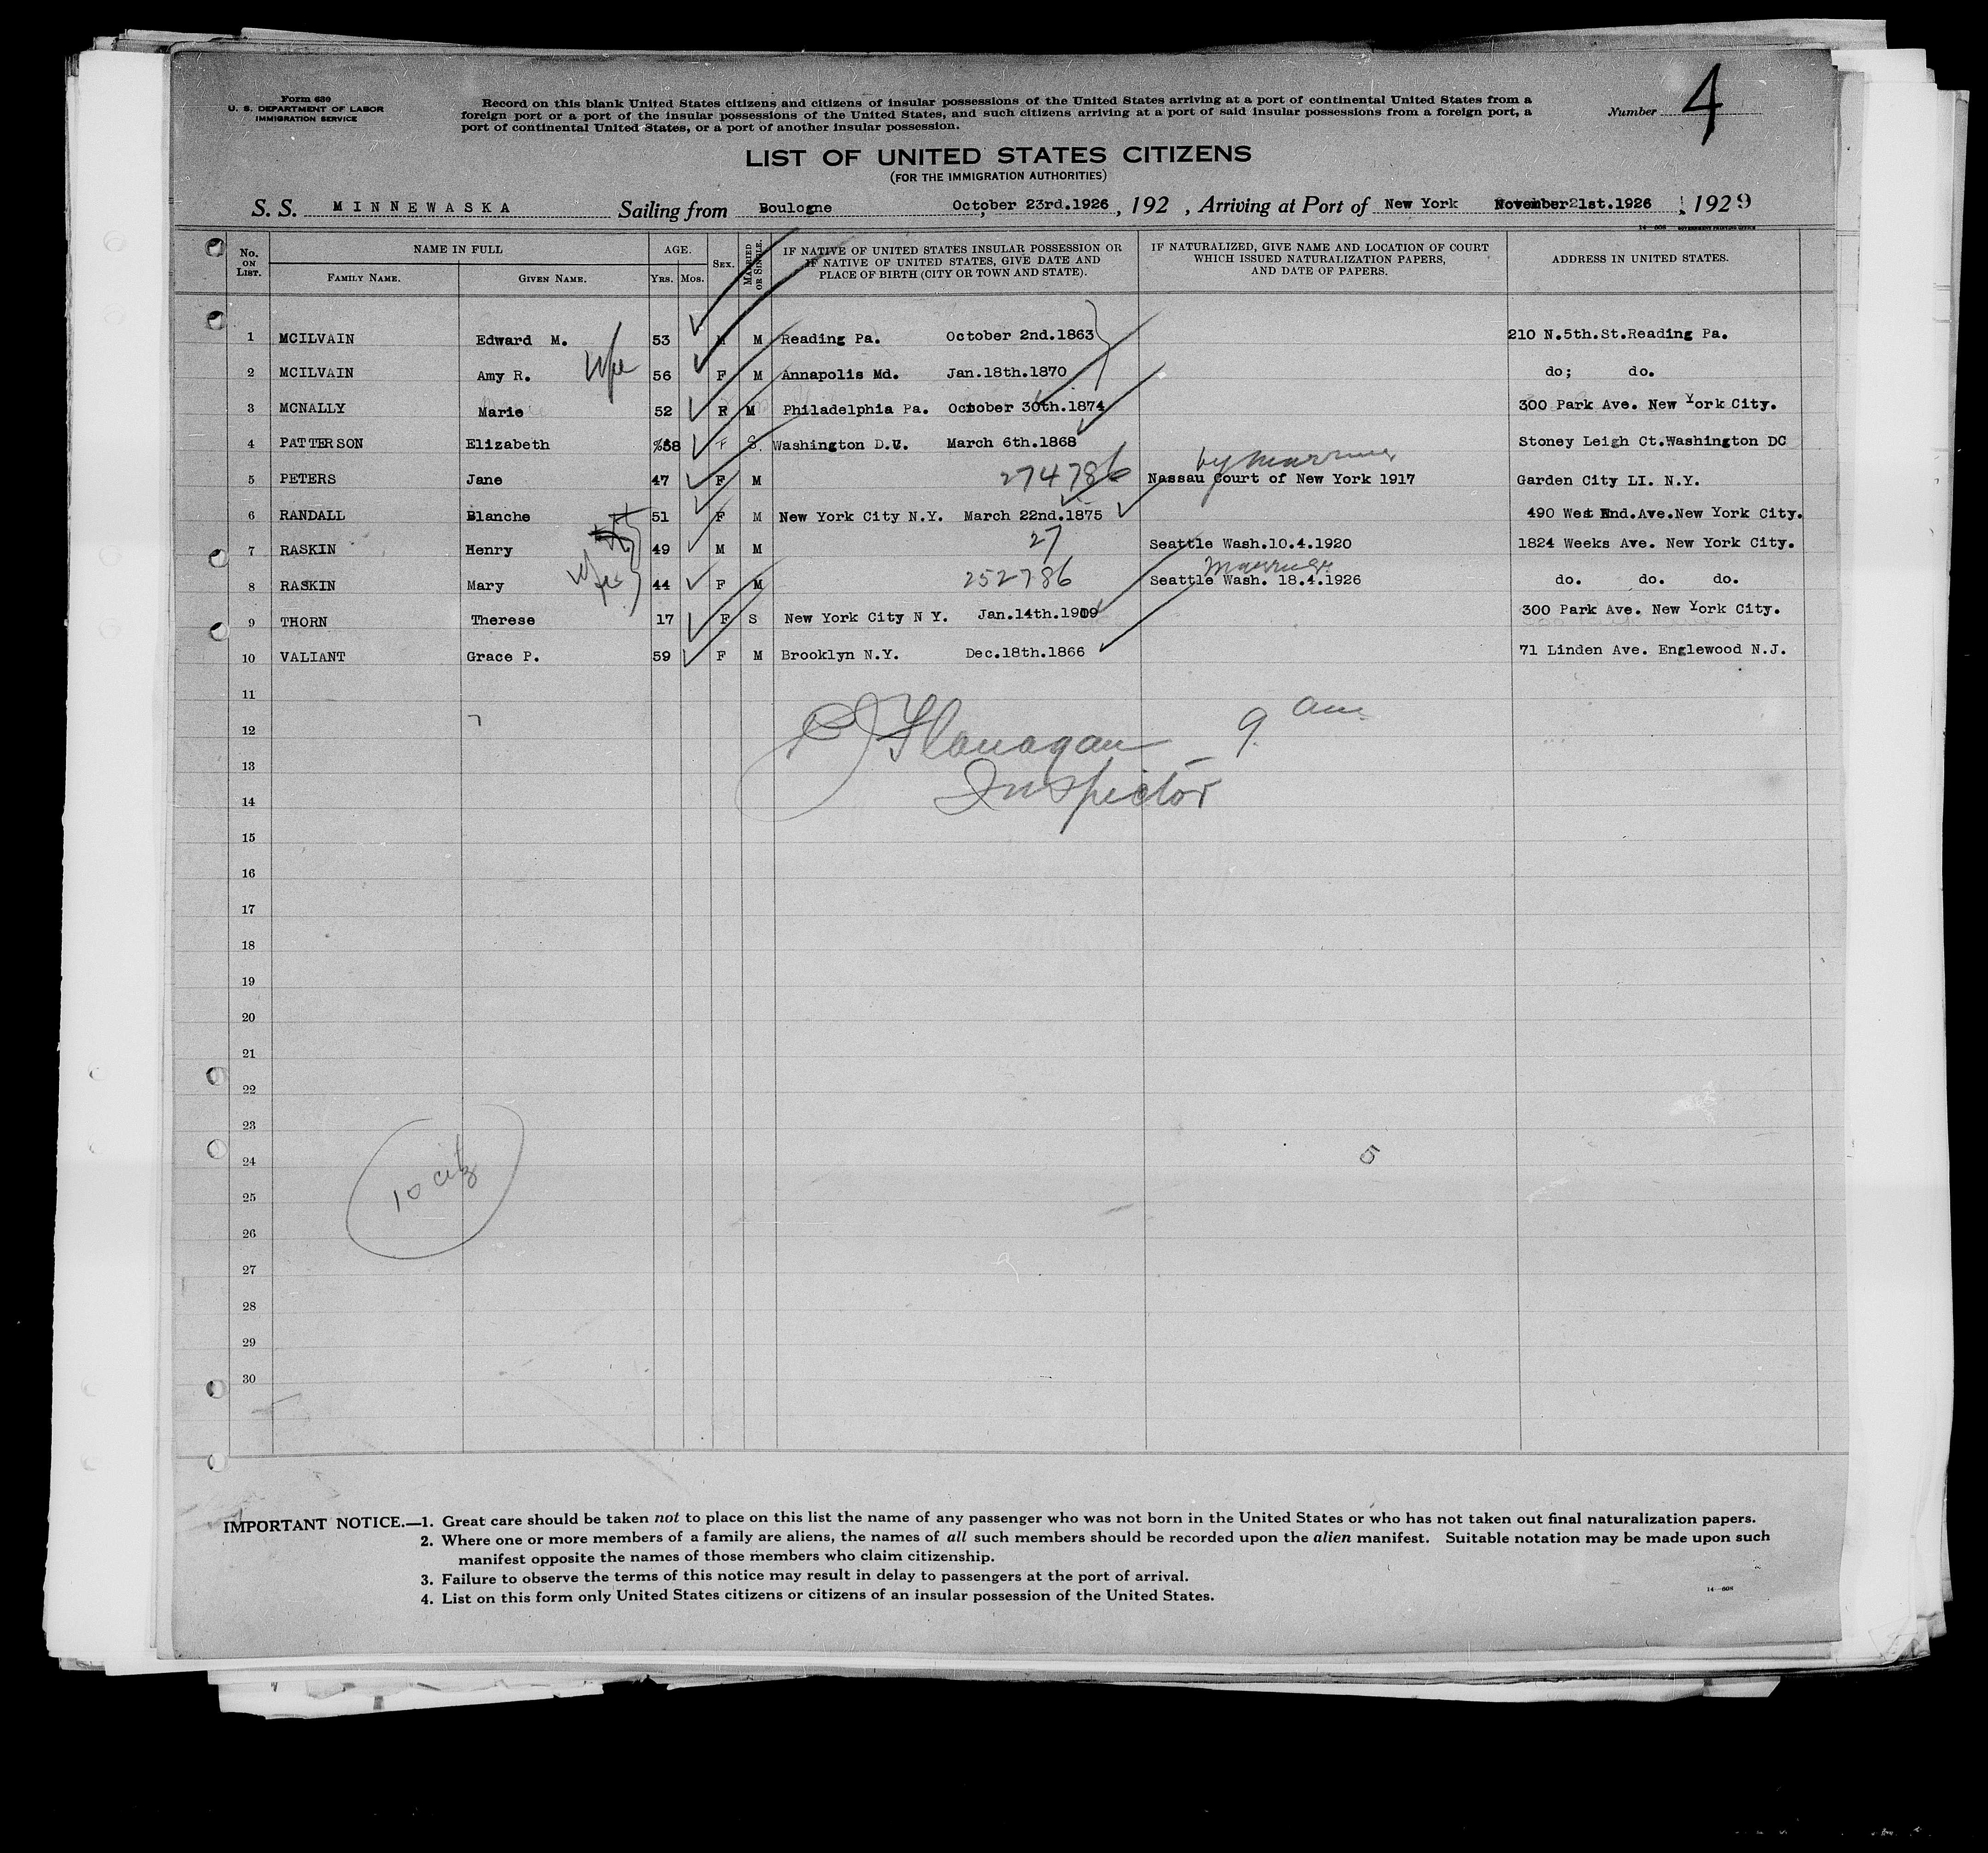 Form 630
U. S. DEPARTMENT OF LABOR
IMMIGRATION SERVICE
Record on this blank United States citizens and citizens of insular possessions of the United States arriving at a port of continental United States from a
foreign port or a port of the insular possessions of the United States, and such citizens arriving at a port of said insular possessions from a foreign port, a
port of continental United States, or a port of another insular possession.
Number 4
LIST OF UNITED STATES CITIZENS
(FOR THE IMMIGRATION AUTHORITIES)
S. S. MINNEWASKA Sailing from Boulogne October 23rd.1926, 192 , Arriving at Port of New York 1st.1926 , 1929
14—608 GOVERNMENT PRINTING OFFICE
No. ON LIST. NAME IN FULL AGE. SEX. MARRIED OR SINGLE. IF NATIVE OF UNITED STATES INSULAR POSSESSION OR IF NATIVE OF UNITED STATES, GIVE DATE AND PLACE OF BIRTH (CITY OR TOWN AND STATE). IF NATURALIZED, GIVE NAME AND LOCATION OF COURT WHICH ISSUED NATURALIZATION PAPERS, AND DATE OF PAPERS. ADDRESS IN UNITED STATES.
FAMILY NAME. GIVEN NAME. YRS. MOS.
1 MCILVAIN Edward M. 53 M M Reading Pa. October 2nd.1863 210 N.5th.St.Reading Pa.
2 MCILVAIN Amy R. Wife 56 F M Annapolis Md. Jan.18th.1870 do; do.
3 MCNALLY Marie 52 F M Philadelphia Pa. October 30th.1874 300 Park Ave. New York City.
4 PATTERSON Elizabeth 58 F S. Washington D.C. March 6th.1868 Stoney Leigh Ct.Washington DC
by marriage
5 PETERS Jane 47 F M 274786 Nassau Court of New York 1917 Garden City LI. N.Y.
6 RANDALL Blanche 51 F M New York City N.Y. March 22nd.1875 490 West End.Ave.New York City.
7 RASKIN Henry 49 M M 27 Seattle Wash.10.4.1920 1824 Weeks Ave. New York City.
marriage
8 RASKIN Mary Wife 44 F M 252786 Seattle Wash. 18.4.1926 do. do. do.
9 THORN Therese 17 F S New York City N Y. Jan.14th.1909 300 Park Ave. New York City.
10 VALIANT Grace P. 59 F M Brooklyn N.Y. Dec.18th.1866 71 Linden Ave. Englewood N.J.
11
12 Flanagan 9 am
13
14 Inspector
15
16
17
18
19
20
21
22
23
24 5
10 citz
25
26
27
28
29
30
IMPORTANT NOTICE.—1. Great care should be taken not to place on this list the name of any passenger who was not born in the United States or who has not taken out final naturalization papers.
2. Where one or more members of a family are aliens, the names of all such members should be recorded upon the alien manifest. Suitable notation may be made upon such
manifest opposite the names of those members who claim citizenship.
3. Failure to observe the terms of this notice may result in delay to passengers at the port of arrival.
4. List on this form only United States citizens or citizens of an insular possession of the United States.
14—608